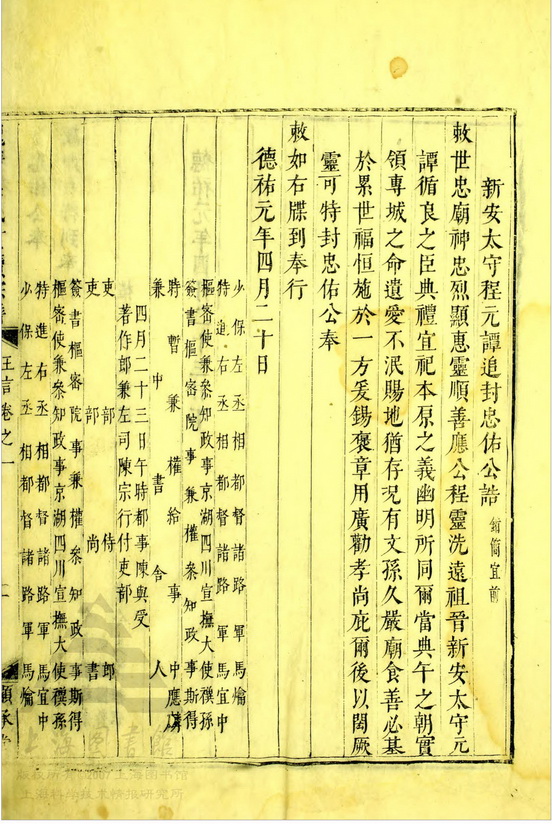 新安太守程元譚追封忠佑公誥
敕世忠廟神忠烈顯惠靈順善應公程靈洗遠祖晉新安太守元
譚循良之臣典禮宜祀本原之義幽明所同爾當典午之朝實
領專城之命遺愛不泯賜地猶存况有文孫久嚴廟食善必基
於累世福恒施於一方爰錫褒章用廣勸孝尚庇爾後以闊厥
靈可特封忠佑公奉
敕如右牒到奉行
德祐元年四月二十日
少保左丞相都督諸路軍馬爚
特進右丞相都督諸路軍馬宜中
樞密使兼參知政事京湖四川宣撫大使禩孫
簽書樞密院事兼權參知政事斯得
時暫兼權給事中應
兼中書舍人
四月二十三日午時都事陳與受
著作郎兼左司陳宗行付吏部
吏部侍郎
吏部尚書
簽書樞密院事兼權參知政事斯得
樞密使兼參知政事京湖四川宣撫大使禩孫
特進右丞相都督諸路軍馬宜中
少保左丞相都督諸路軍馬爚
王言卷之一
二
上海圖書館
2007上海图书馆
上海科学技术情报研究所